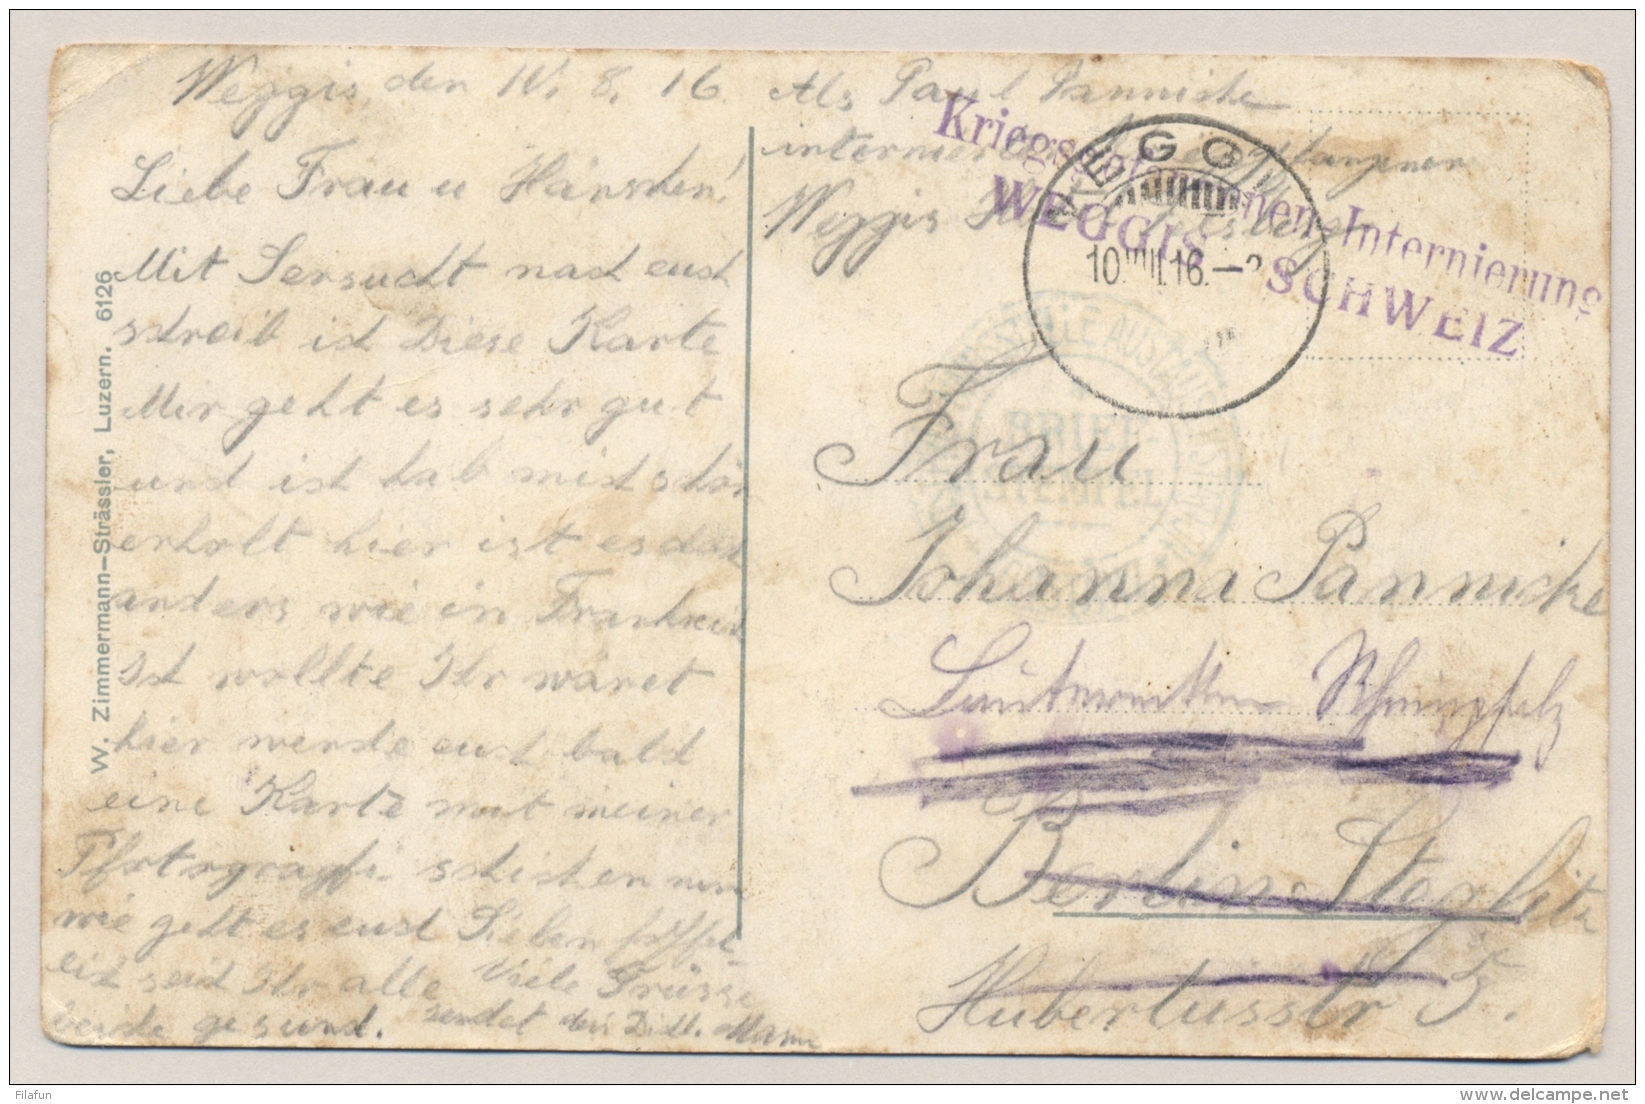 Weggis, den 10. 8. 16.
Liebe Frau u Hänschen!
Mit Sensucht nach euch
schreib ich Diese Karte
Mir geht es sehr gut
und ich hab mich schon
erholt hier ist es doch
anders wie in Frankreich
Ich wollte Ihr waret
hier werde euch bald
eine Karte mit meiner
Pfotografi schicken nun
wie geht es euch Lieben hoffent-
lich seid Ihr alle Viele Grüsse
beide gesund. sendet dein Mann
W. Zimmermann-Strässler, Luzern. 6126
Abs Paul Pannicke
internierter
Weggis
Kriegsgefangenen-Internierung
WEGGIS SCHWEIZ
WEGGIS
10.VIII.16.
BRIEF-
STEMPEL
Frau
Johanna Pannicke
Berlin Steglitz
Hubertusstr 5.
Filafun
delcampe.net